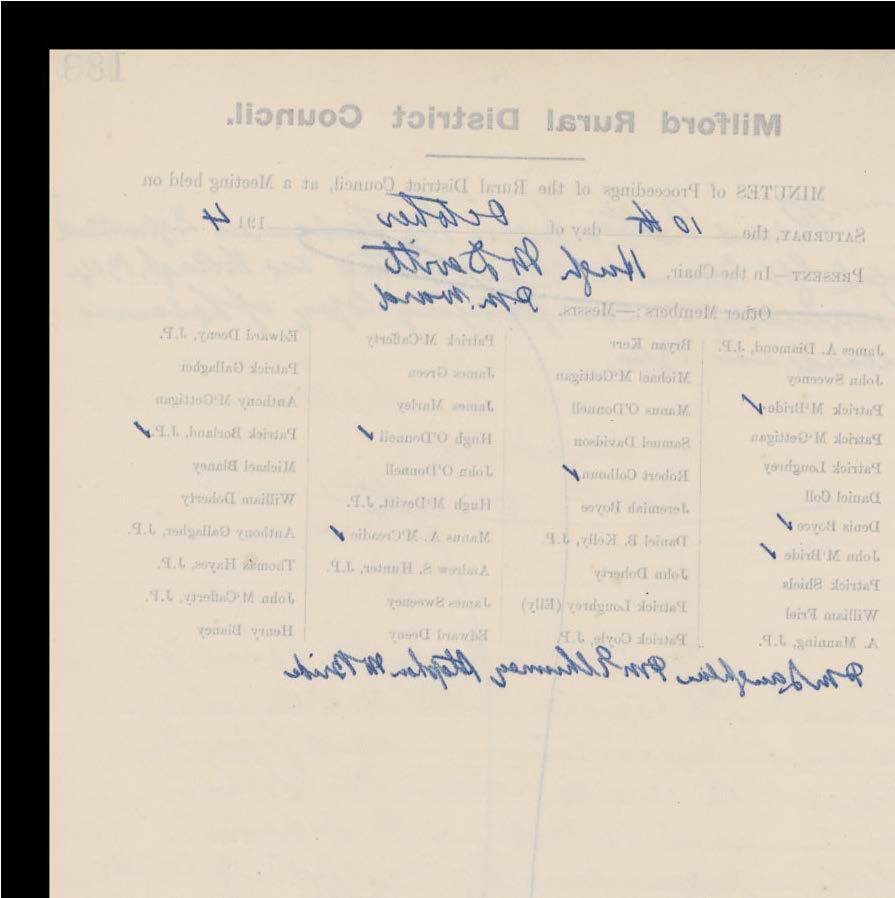 183
Milford Rural District Council.
MINUTES of Proceedings of the Rural District Council, at a Meeting held on
SATURDAY, the 10th day of October 1914
PRESENT—In the Chair. Hugh McDevitt
Other Members:—Messrs. P M. Ward
James A. Diamond, J.P. Bryan Kerr Patrick M'Cafferty Edward Deeny, J.P.
John Sweeney Michael M'Gettigan James Green Patrick Gallagher
Patrick M'Bride ✓ Manus O'Donnell James Marley Anthony M'Gettigan
Patrick M'Gettigan Samuel Davidson Hugh O'Donnell ✓ Patrick Borland, J.P. ✓
Patrick Loughrey Robert Colhoun ✓ John O'Donnell Michael Blaney
Daniel Coll Jeremiah Boyce Hugh M'Devitt, J.P. William Doherty
Denis Boyce ✓ Daniel B. Kelly, J.P. Manus A. M'Creadie ✓ Anthony Gallagher, J.P.
John M'Bride ✓ John Doherty Andrew S. Hunter, J.P. Thomas Hayes, J.P.
Patrick Shiels Patrick Loughrey (Elly) James Sweeney John M'Cafferty, J.P.
William Friel Patrick Coyle, J.P. Edward Deeny Henry Blaney
A. Manning, J.P.
Stephen McBride